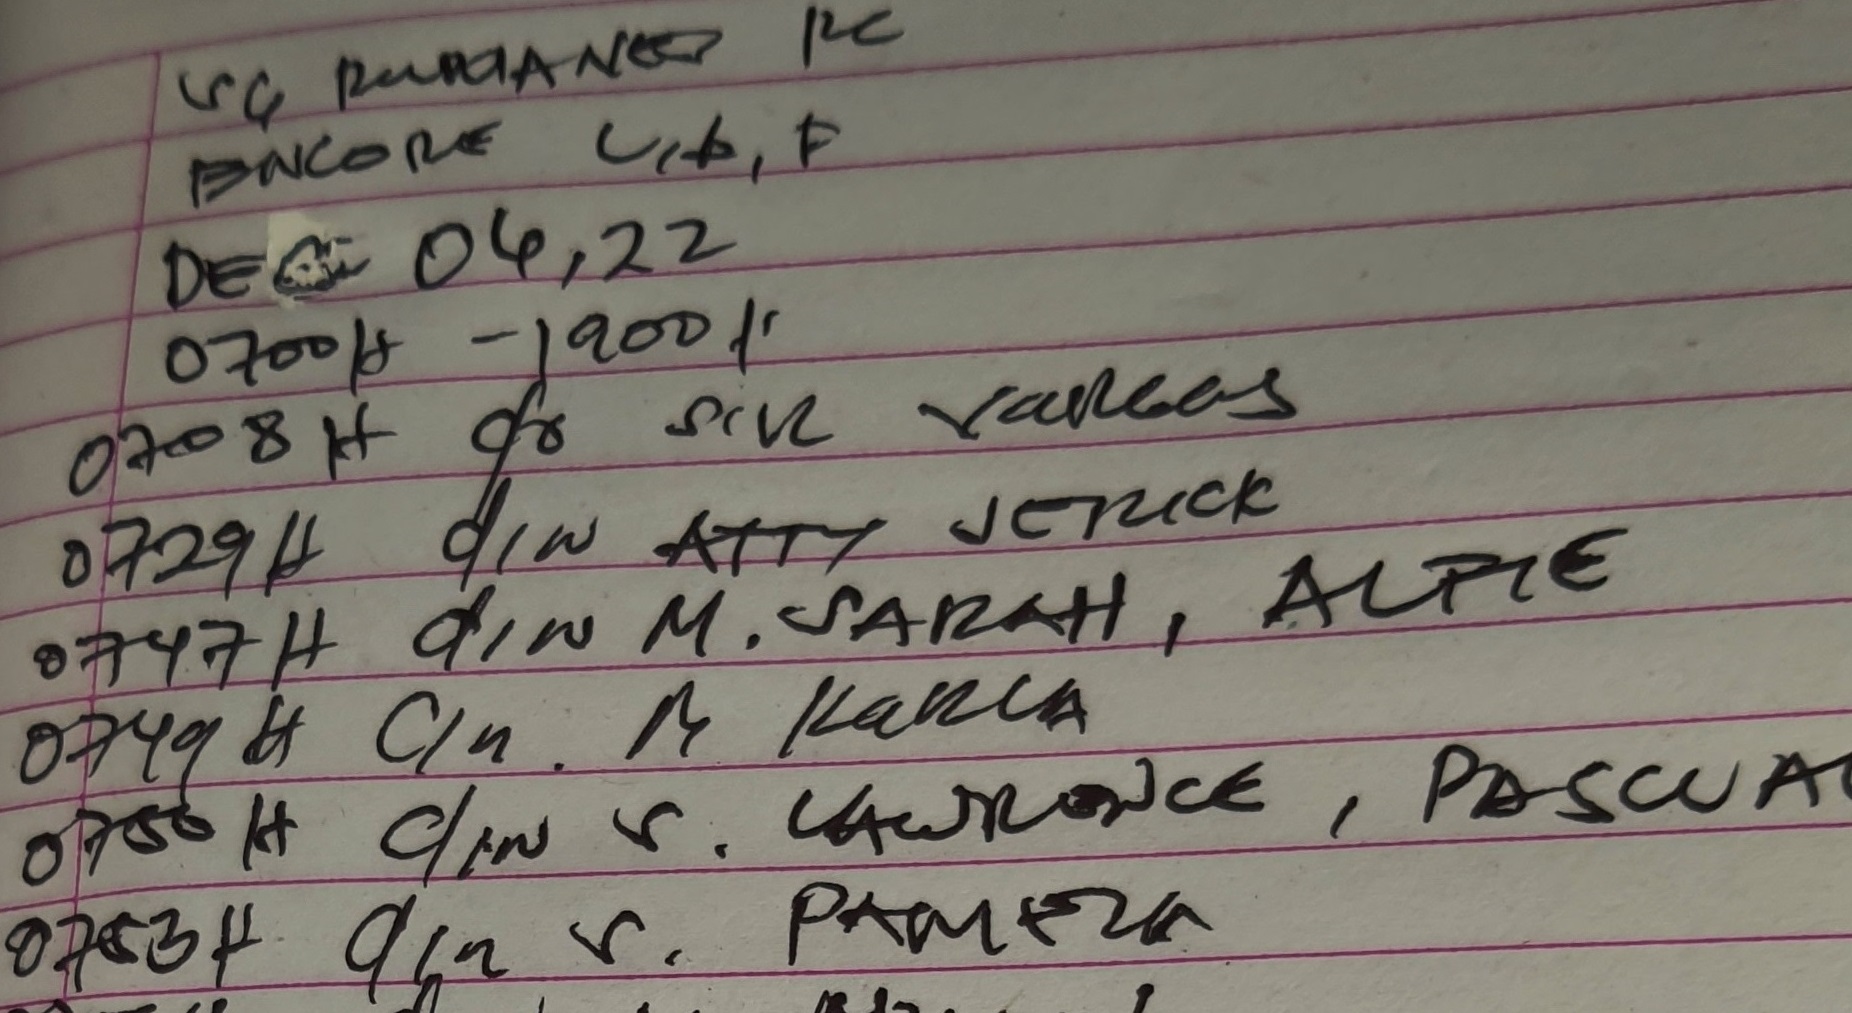 SG RC
ENCORE L, b, F
DEC 04, 22
0700H - 1900H
0708H SIR VARGAS
0729H d/in ATTY JERICK
0747H d/in M. SARAH, ALFIE
0749H C/n. M KARLA
0750H C/in S. LAWRENCE, PASCUAL
0753H d/in S. PAMELA